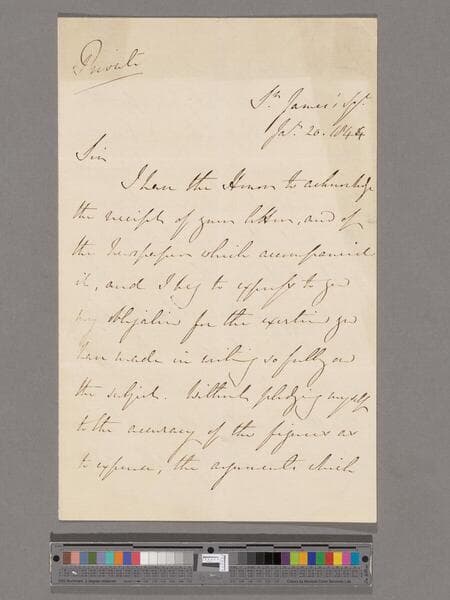 Private
St. James' Sqr.
Jany. 20. 1844
Sir
I have the Honor to acknowledge
the receipt of your letter, and of
the Newspaper which accompanied
it, and I beg to express to you
my obligation for the exertion you
have made in writing so fully on
the subject. Without pledging myself
to the accuracy of the figures as
to expense, the arguments which